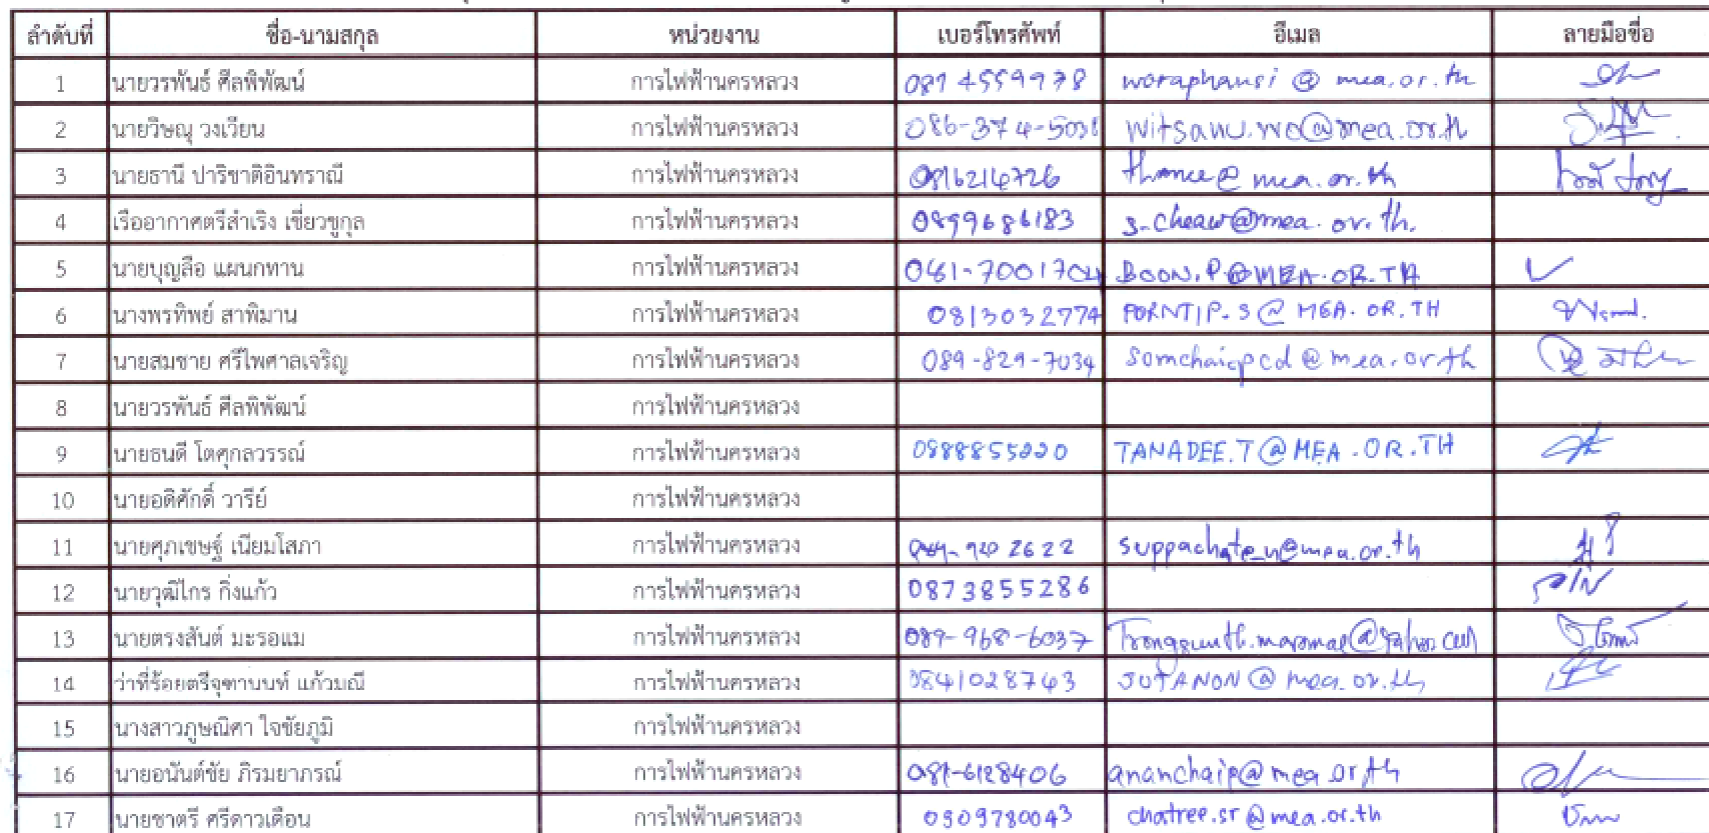 ลำดับที่ ชื่อ-นามสกุล หน่วยงาน เบอร์โทรศัพท์ อีเมล ลายมือชื่อ
1 นายวรพันธ์ ศีลพิพัฒน์ การไฟฟ้านครหลวง 081 4559978 woraphansi @ mea.or.th
2 นายวิษณุ วงเวียน การไฟฟ้านครหลวง 086-374-5031 witsanu.wo@mea.or.th
3 นายธานี ปาริชาติอินทราณี การไฟฟ้านครหลวง 0816214726 thanee@mea.or.th
4 เรืออากาศตรีสำเริง เขี่ยวชูกุล การไฟฟ้านครหลวง 0899686183 s-cheaw@mea.or.th.
5 นายบุญลือ แผนกทาน การไฟฟ้านครหลวง 081-7001704 BOON.P@MEA.OR.TH
6 นางพรทิพย์ สาพิมาน การไฟฟ้านครหลวง 0813032774 PORNTIP.S@MEA.OR.TH
7 นายสมชาย ศรีไพศาลเจริญ การไฟฟ้านครหลวง 089-829-7034 somchaiopcd@mea.or.th
8 นายวรพันธ์ ศีลพิพัฒน์ การไฟฟ้านครหลวง
9 นายธนดี โตศุกลวรรณ์ การไฟฟ้านครหลวง 0888855220 TANADEE.T@MEA.OR.TH
10 นายอดิศักดิ์ วารีย์ การไฟฟ้านครหลวง
11 นายศุภเชษฐ์ เนียมโสภา การไฟฟ้านครหลวง suppachate_n@mea.or.th
12 นายวุฒิไกร กิ่งแก้ว การไฟฟ้านครหลวง 0873855286
13 นายตรงสันต์ มะรอแม การไฟฟ้านครหลวง 089-968-6037
14 ว่าที่ร้อยตรีจุฑานนท์ แก้วมณี การไฟฟ้านครหลวง 0841028743 JUTANON@mea.or.th
15 นางสาวภูษณิศา ใจชัยภูมิ การไฟฟ้านครหลวง
16 นายอนันต์ชัย ภิรมยาภรณ์ การไฟฟ้านครหลวง 081-6128406 ananchaip@mea.or.th
17 นายชาตรี ศรีดาวเดือน การไฟฟ้านครหลวง 0909780043 chatree.sr@mea.or.th